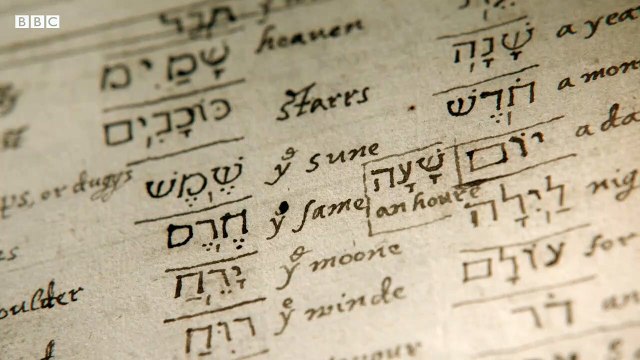 BBC
שָׁמַיִם heaven
שָׁנָה a yea
כּוֹכָבִים starrs
חֹדֶשׁ a mon
ps, or duggs שֶׁמֶשׁ yͤ sune
שָׁעָה an houre
יוֹם a da
חֶרֶס yͤ same
לַיְלָה nig
oulder יָרֵחַ yͤ moone
עוֹלָם for
רוּחַ yͤ winde
דֹר an